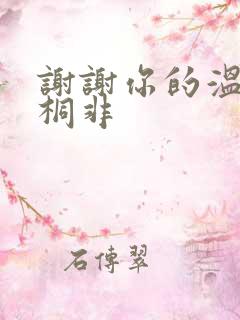 謝謝你的溫
桐非
石傳翠